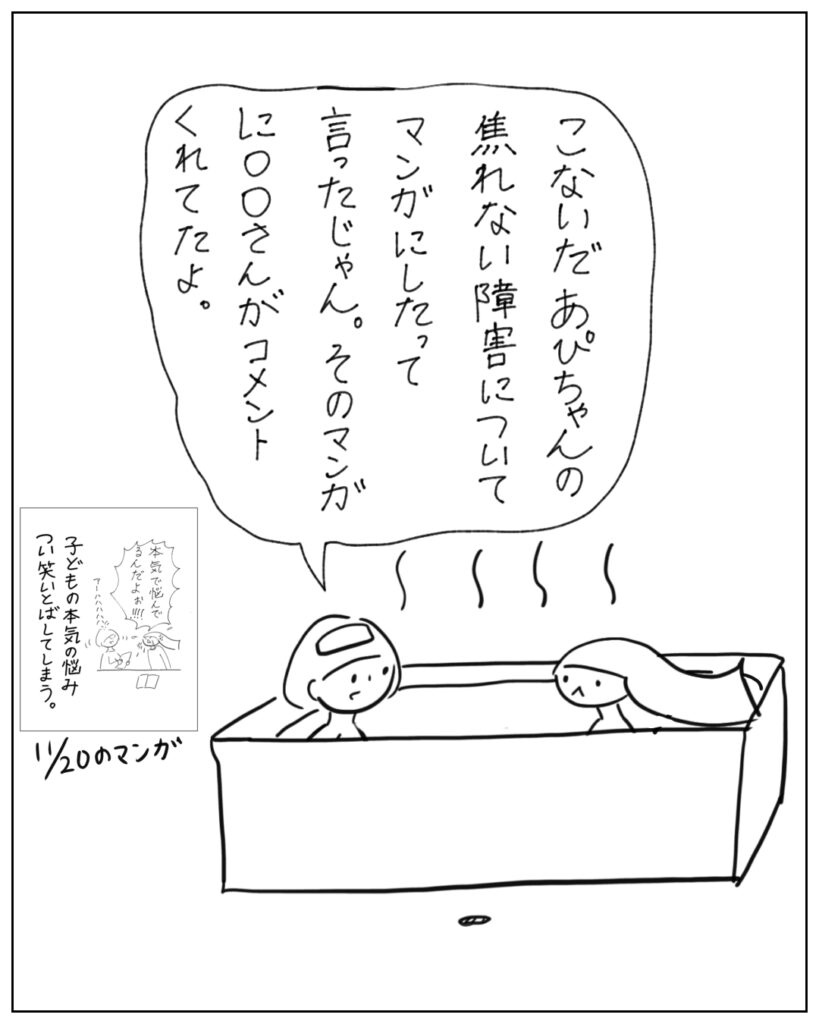 こないだあぴちゃんの
焦れない障害について
マンガにしたって
言ったじゃん。そのマンガ
に〇〇さんがコメント
くれてたよ。
本気で悩んで
るんだよぉ!!!!
アーハハハハハ!!
子どもの本気の悩み
つい笑いとばしてしまう。
11/20のマンガ